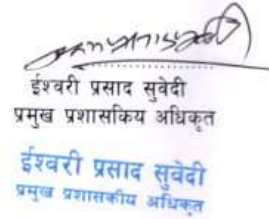 ईश्वरी प्रसाद सुवेदी
प्रमुख प्रशासकिय अधिकृत
ईश्वरी प्रसाद सुवेदी
प्रमुख प्रशासकीय अधिकृत